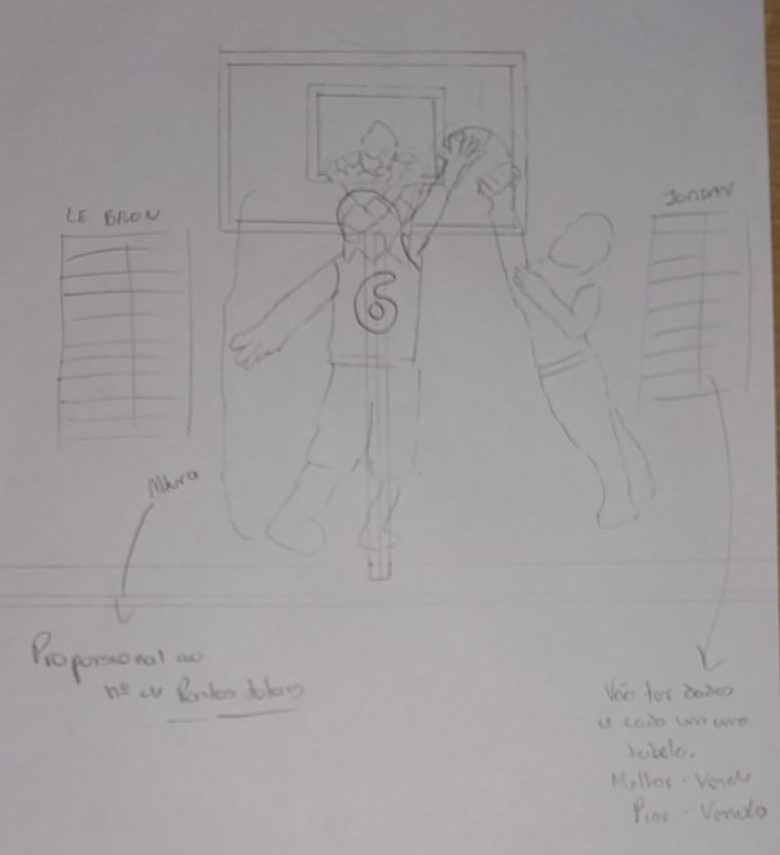 LE BRON
JORDAN
6
Altura
Proporsional ao
nº de Pontos totais
Vão ter dados
e cada um uma
tabela.
Melhor - Verde
Pior - Vermelho